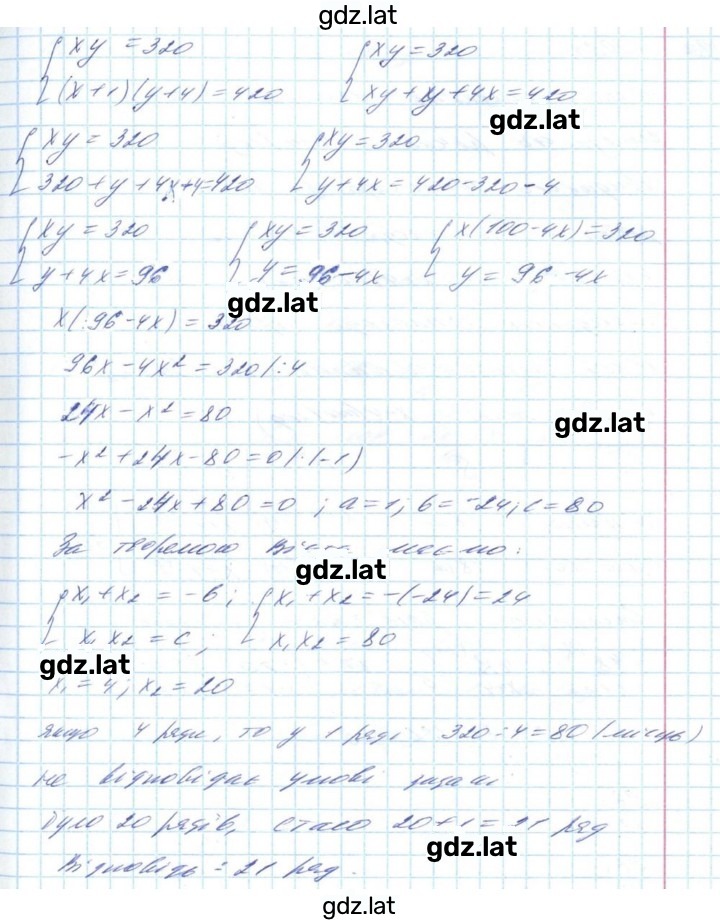 gdz.lat
xy = 320 xy = 320
(x+1)(y+4) = 420 xy + xy + 4x = 420
gdz.lat
xy = 320 xy = 320
320 + y + 4x + 4 = 420 y + 4x = 420 - 320 - 4
xy = 320 xy = 320 x(100 - 4x) = 320
y + 4x = 96 y = 96 - 4x y = 96 - 4x
gdz.lat
x(96 - 4x) = 320
96x - 4x² = 320 |:4
24x - x² = 80
gdz.lat
-x² + 24x - 80 = 0 |·(-1)
x² - 24x + 80 = 0 ; a = 1; b = -24; c = 80
За теоремою Вієта маємо:
gdz.lat
x₁ + x₂ = -b; x₁ + x₂ = -(-24) = 24
x₁ x₂ = c; x₁ x₂ = 80
gdz.lat
x₁ = 4; x₂ = 20
якщо 4 ряди, то у 1 ряді 320 : 4 = 80 (місць)
не відповідає умові задачі
Було 20 рядів, стало 20 + 1 = 21 ряд
gdz.lat
Відповідь: 21 ряд.
gdz.lat